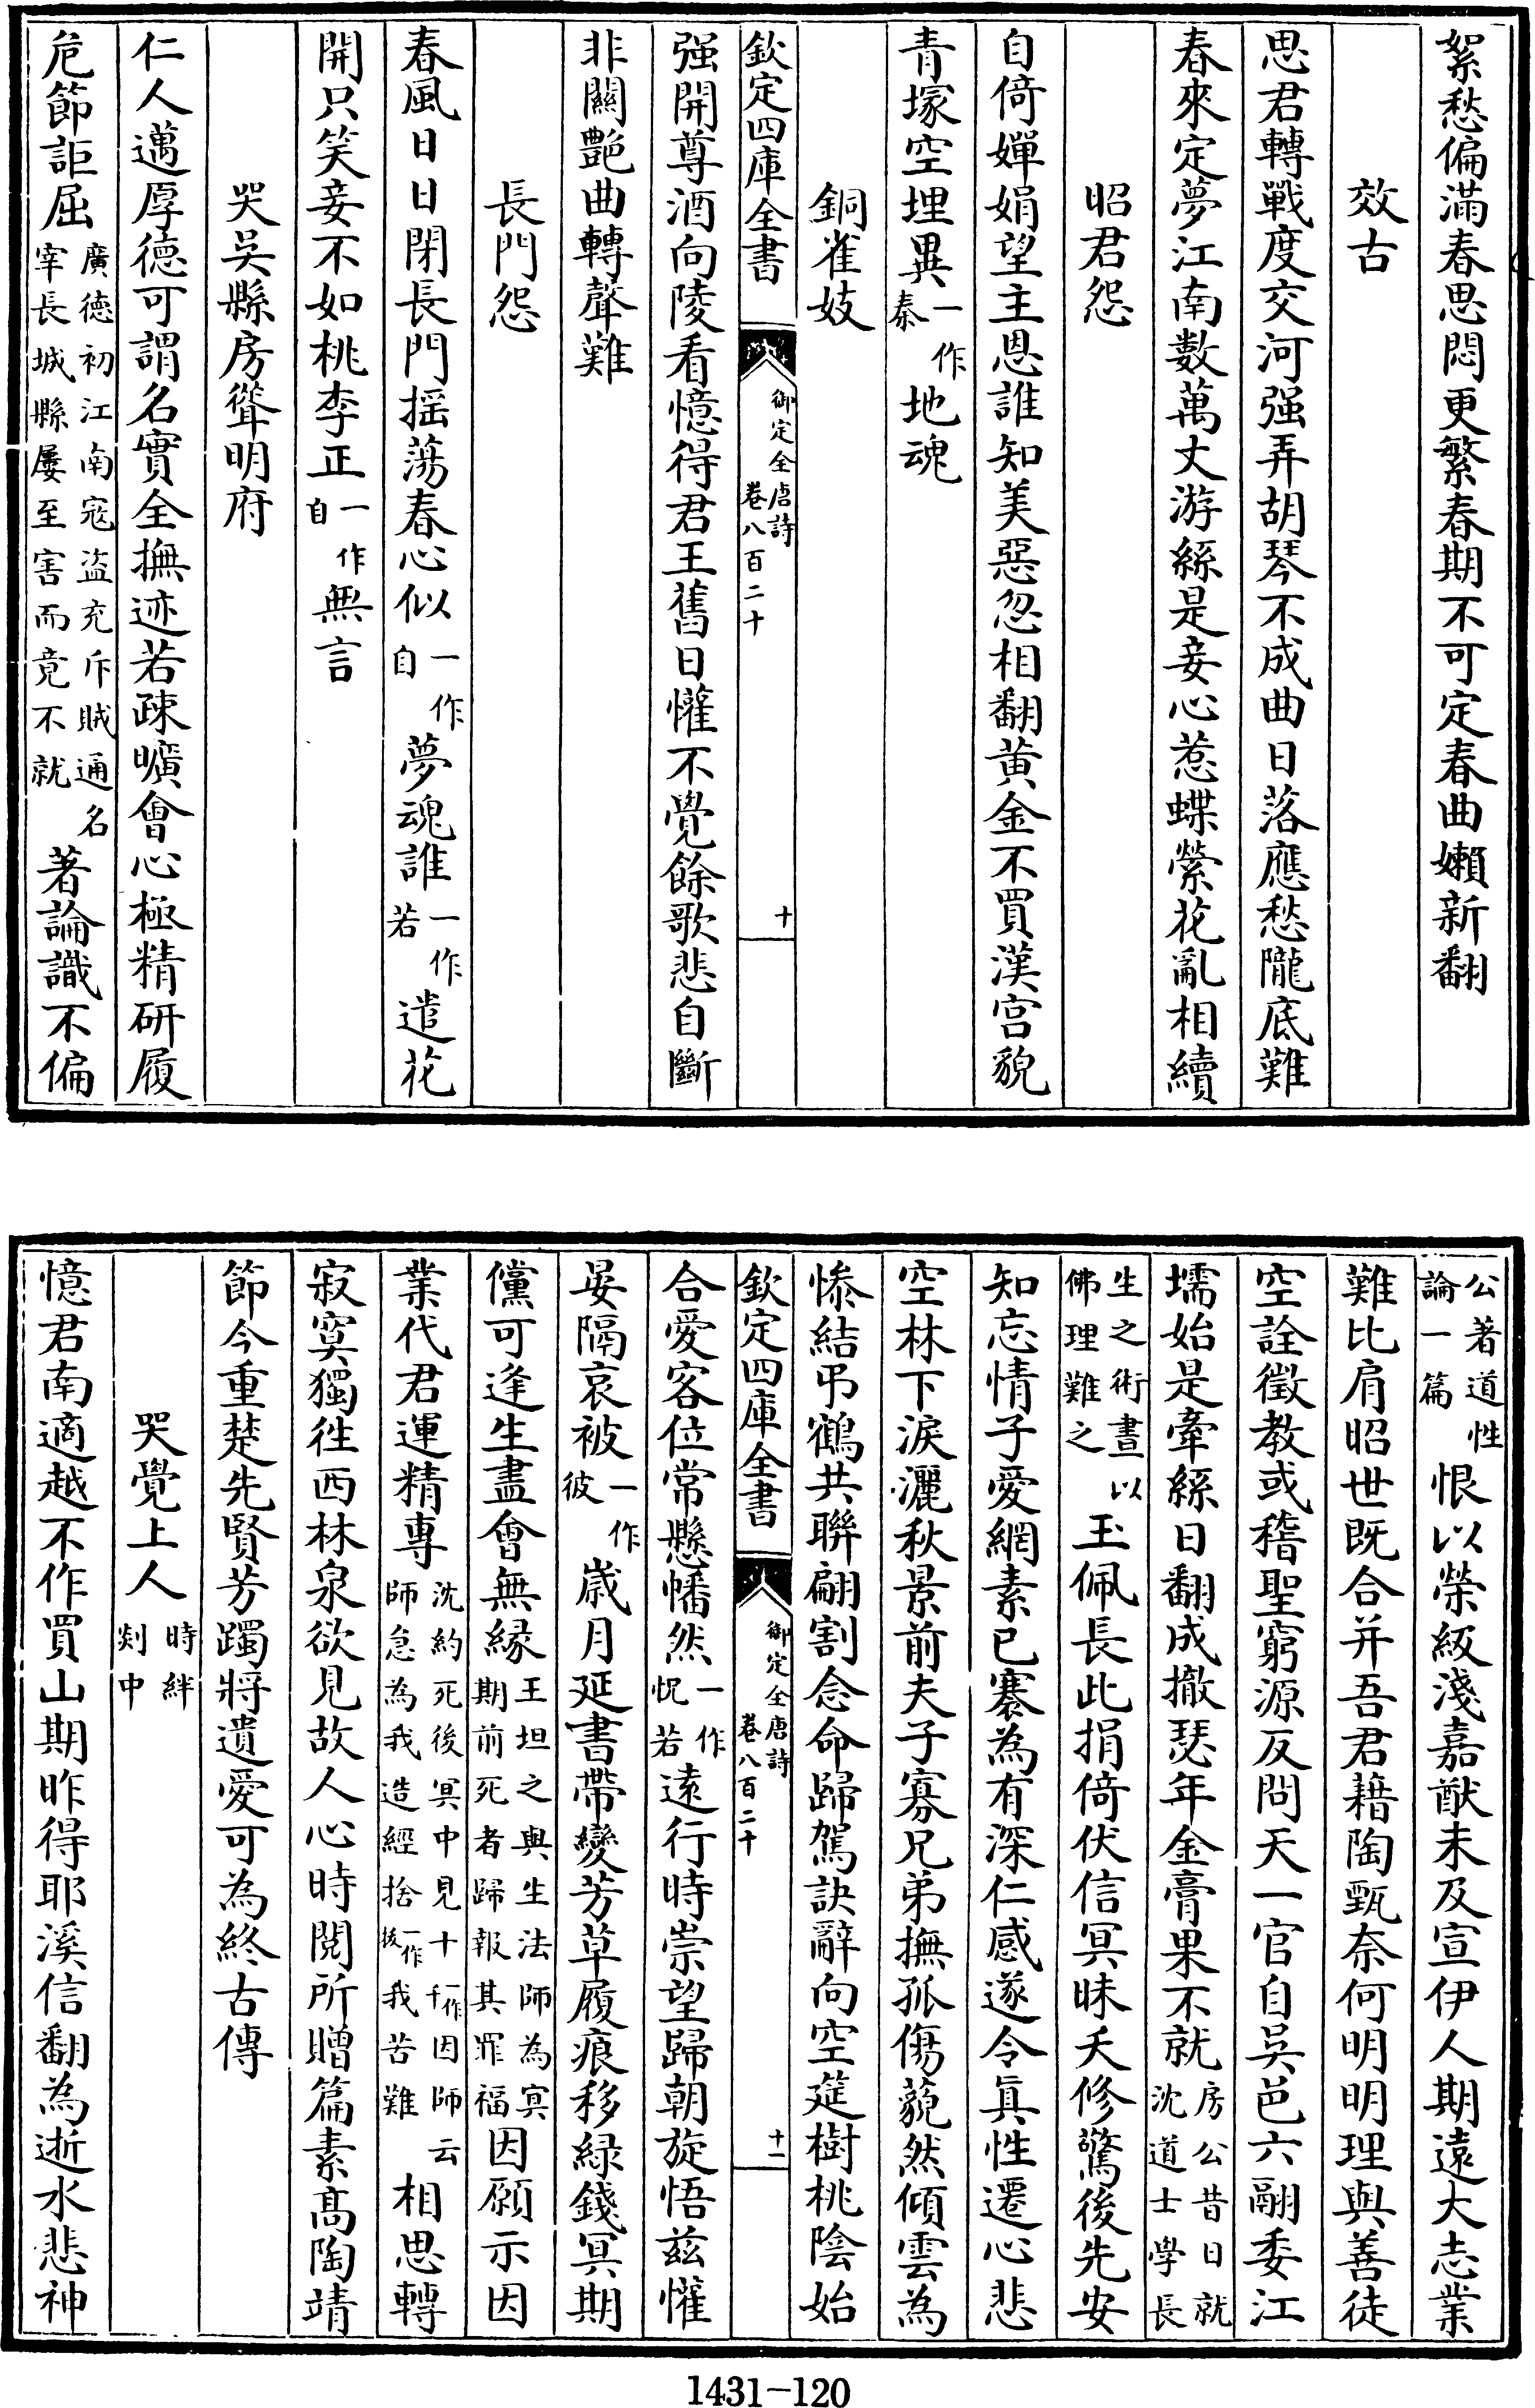 絮愁偏滿春思悶更繁春期不可定春曲嬾新翻
效古
思君轉戰度交河强弄胡琴不成曲日落應愁隴底難
春來定夢江南數萬丈游絲是妾心惹蝶縈花亂相續
昭君怨
自倚嬋娟望主恩誰知美惡忽相翻黄金不買漢宫貌
青塚空埋異一作秦地魂
銅雀妓
欽定四庫全書 御定全唐詩卷八百二十 十
强開尊酒向陵看憶得君王舊日懽不覺餘歌悲自斷
非關艷曲轉聲難
長門怨
春風日日閉長門摇蕩春心似一作自夢魂誰一作若遣花
開只笑妾不如桃李正一作自無言
哭吳縣房聳明府
仁人邁厚德可謂名實全撫迹若疎曠會心極精研履
危節詎屈廣德初江南寇盗充斥賊逼名宰長城縣屢至害而竟不就著論識不偏
公著道性論一篇恨以榮級淺嘉猷未及宣伊人期遠大志業
難比肩昭世既合并吾君藉陶甄奈何明明理與善徒
空詮徵教或稽聖窮源反問天一官自吳邑六翮委江
壖始是牽絲日翻成撤瑟年金膏果不就房公昔日就沈道士學長
生之術晝以佛理難之玉佩長此捐倚伏信冥昧夭修驚後先安
知忘情子愛網素已褰為有深仁感遂令眞性遷心悲
空林下淚灑秋景前夫子寡兄弟撫孤傷藐然傾雲為
慘結弔鶴共聯翩割念命歸駕訣辭向空筵樹桃陰始
欽定四庫全書 御定全唐詩卷八百二十 十一
合愛客位常懸幡然一作怳若遠行時崇望歸朝旋悟兹懽
晏隔哀被一作彼歲月延書帶變芳草履痕移緑錢冥期
儻可逢生盡會無縁王坦之與生法師為冥期前死者歸報其罪福因願示因
業代君運精專沈約死後冥中見十一作千因師云師急為我造經捨一作拔我苦難相思轉
寂寞獨往西林泉欲見故人心時閱所贈篇素髙陶靖
節今重楚先賢芳躅將遺愛可為終古傳
哭覺上人時絆剡中
憶君南適越不作買山期昨得耶溪信翻為逝水悲神
1431-120